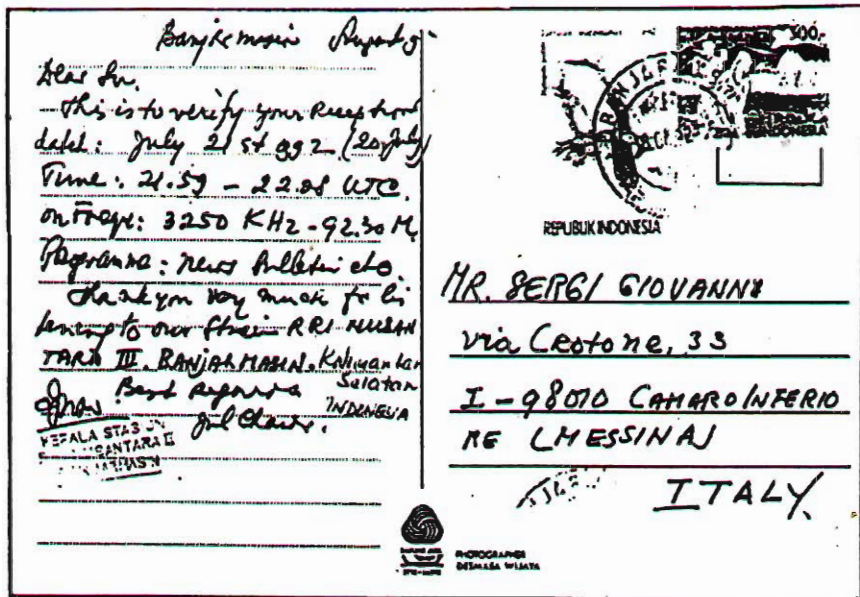 Banjarmasin
Dear Sir.
This is to verify your Reception
dated: July 21 st 992 (20 July)
Time: 21.59 - 22.08 UTC.
on Freqe: 3250 KHz - 92.30 M,
Programma: news Bulletin etc
Thank you very much for lis
tening to our RRI NUSAN
TARA III. BANJARMASIN. Kalimantan
Selatan
INDONESIA
Best Regards
KEPALA STASIUN
300,-
REPUBLIK INDONESIA
MR. SERGI GIOVANNY
via Crotone, 33
I - 98070 CAMARO INFERIO
RE (MESSINA)
ITALY.
PHOTOGRAPHER
DESMASA WIJAYA